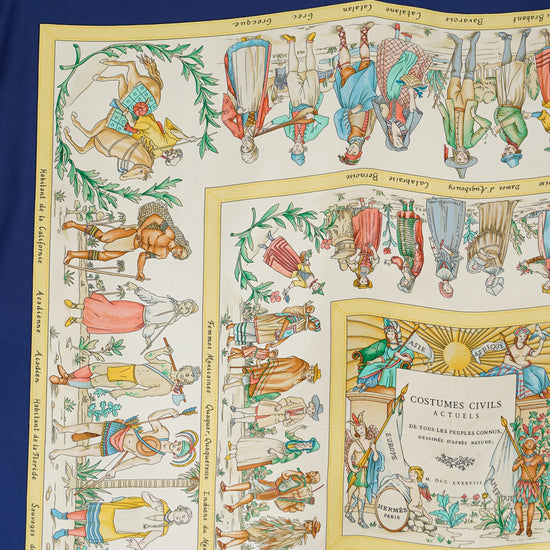 Grecque Grec Catalan Catalane Bavarois Brabant
Calabraise Bernoise Dames d'Augsbourg
Habitant de la Californie Acadienne Acadien Habitant de la Floride Sauvages
Femmes Marocaines Quaquer, Quaqueresse Indiens du
ASIE
AFRIQUE
EUROPE
COSTUMES CIVILS
ACTUELS
DE TOUS LES PEUPLES CONNUS,
DESSINÉS D'APRÈS NATURE,
M DCC LXXXVIII
HERMÈS
PARIS